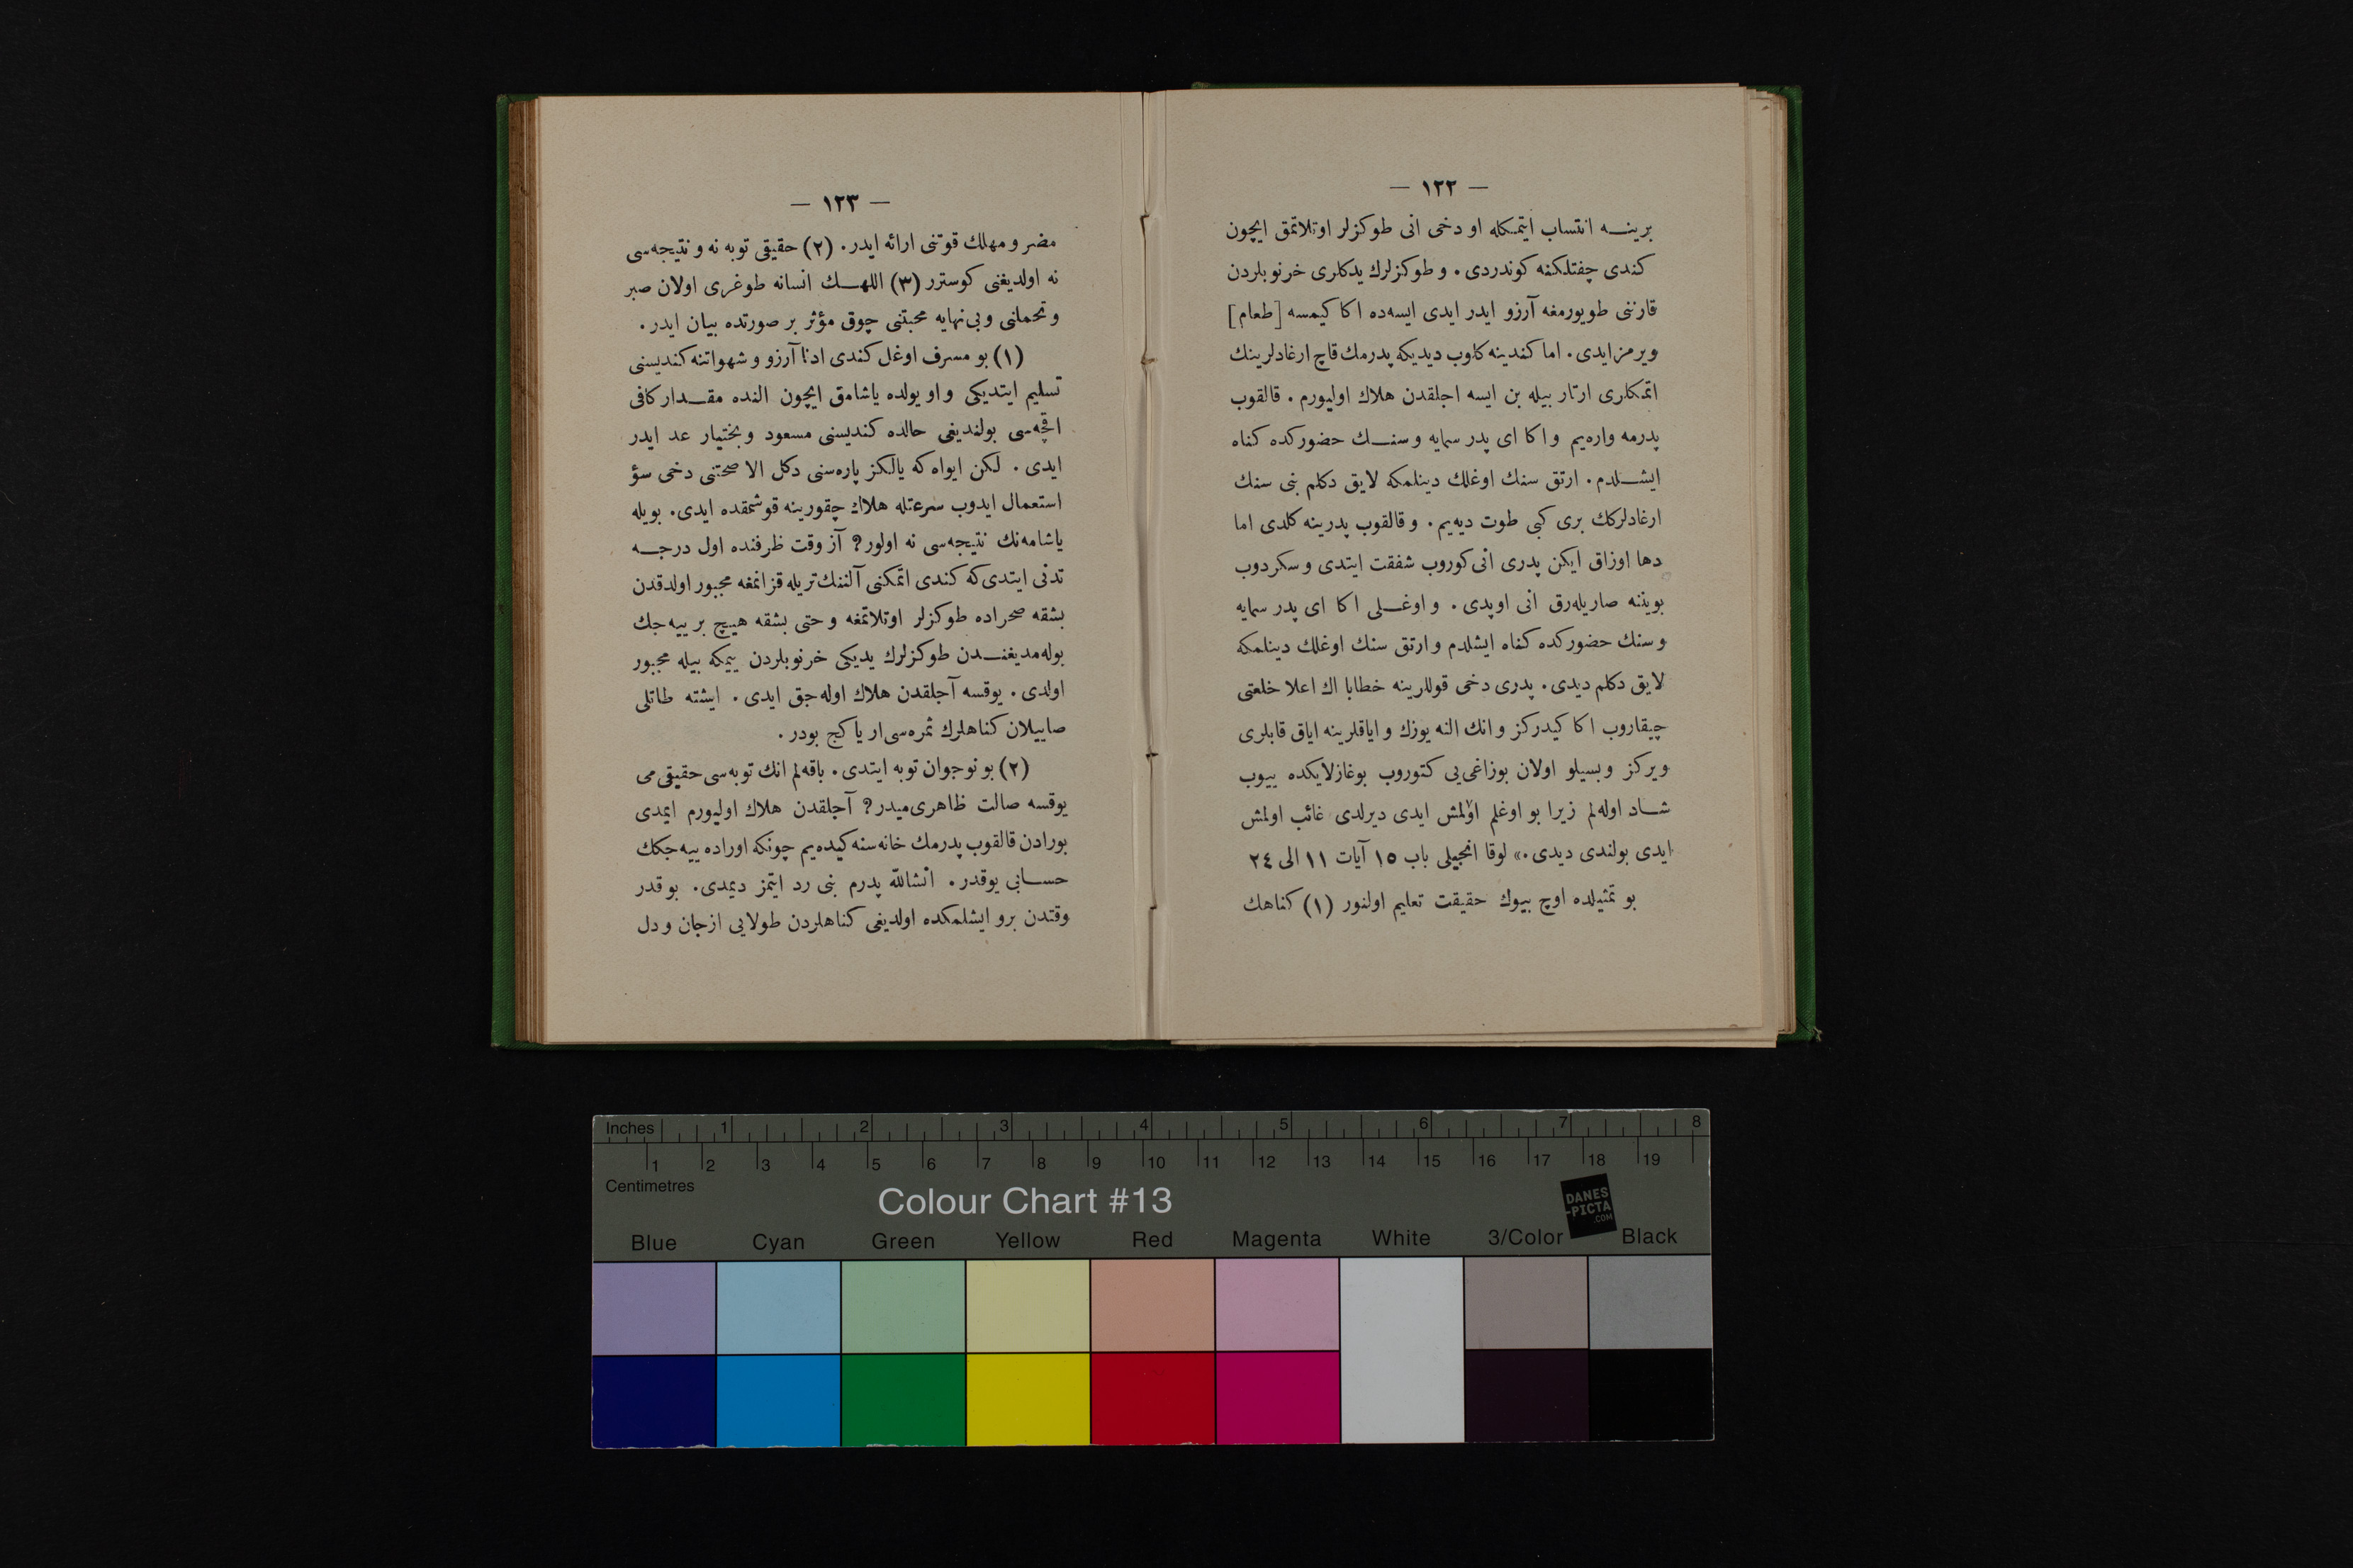 — ١٢٢ —
برينـــه انتساب ايتمكله او دخى انى طوكزلر اوتلاتمق ايچون
كندى چفتلكنه كوندردى . و طوكزلرك يدكلرى خرنوبلردن
قارننى طويورمغه آرزو ايدر ايدى ايسه‌ده اكا كيمسه [طعام]
ويرمز ايدى . اما كندينه كلوب ديديكه پدرمك قاچ ارغادلرينك
اتمكلرى ارتار بيله بن ايسه اجلقدن هلاك اوليورم . قالقوب
پدرمه واره‌يم و اكا اى پدر سمايه و سنـــك حضوركده كناه
ايشـــلدم . ارتق سنك اوغلك دينلمكه لايق دكلم بنى سنك
ارغادلركك برى كبى طوت ديه‌يم . و قالقوب پدرينه كلدى اما
دها اوزاق ايكن پدرى انى كوروب شفقت ايتدى و سكردوب
بويننه صاريله‌رق انى اوپدى . و اوغـــلى اكا اى پدر سمايه
و سنك حضوركده كناه ايشلدم و ارتق سنك اوغلك دينلمكه
لايق دكلم ديدى . پدرى دخى قوللرينه خطابا اك اعلا خلعتى
چيقاروب اكا كيدركز و انك النه يوزك و اياقلرينه اياق قابلرى
ويركز و بسيلو اولان بوزاغى‌يى كتوروب بوغازلايكده ييوب
شـــاد اوله‌لم زيرا بو اوغلم اولمش ايدى ديرلدى غائب اولمش
ايدى بولندى ديدى .» لوقا انجيلى باب ١٥ آيات ١١ الى ٢٤
بو تمثيلده اوچ بيوك حقيقت تعليم اولنور (١) كناهك
— ١٢٣ —
مضر و مهلك قوتنى ارائه ايدر . (٢) حقيقى توبه نه و نتيجه‌سى
نه اولديغنى كوسترر (٣) اللهـــك انسانه طوغرى اولان صبر
و تحملنى و بى‌نهايه محبتنى چوق مؤثر بر صورتده بيان ايدر .
(١) بو مسرف اوغل كندى ادنا آرزو و شهواتنه كنديسنى
تسليم ايتديكى و او يولده ياشامق ايچون النده مقـــدار كافى
اقچه‌سى بولنديغى حالده كنديسنى مسعود و بختيار عد ايدر
ايدى . لكن ايواه كه يالكز پاره‌سنى دكل الا صحتنى دخى سؤ
استعمال ايدوب سرعتله هلاك چقورينه قوشمقده ايدى . بويله
ياشامه‌نك نتيجه‌سى نه اولور؟ آز وقت ظرفنده اول درجـــه
تدنى ايتدى كه كندى اتمكنى آلننك تريله قزانمغه مجبور اولدقدن
بشقه صحراده طوكزلر اوتلاتمغه و حتى بشقه هيچ بر ييه‌جك
بوله‌مديغنـــدن طوكزلرك يديكى خرنوبلردن ييمكه بيله مجبور
اولدى . يوقسه آجلقدن هلاك اوله‌جق ايدى . ايشته طاتلى
صاييلان كناهلرك ثمره‌سى ار يا كج بودر .
(٢) بو نوجوان توبه ايتدى . باقه‌لم انك توبه‌سى حقيقى‌مى
يوقسه صالت ظاهرى‌ميدر؟ آجلقدن هلاك اوليورم ايمدى
بورادن قالقوب پدرمك خانه‌سنه كيده‌يم چونكه اوراده ييه‌جكك
حســـابى يوقدر . انشاﷲ پدرم بنى رد ايتمز ديمدى . بو قدر
وقتدن برو ايشلمكده اولديغى كناهلردن طولايى از جان و دل
Inches 1 2 3 4 5 6 7 8
1 2 3 4 5 6 7 8 9 10 11 12 13 14 15 16 17 18 19
Centimetres
Colour Chart #13
DANES
-PICTA
.COM
Blue Cyan Green Yellow Red Magenta White 3/Color Black